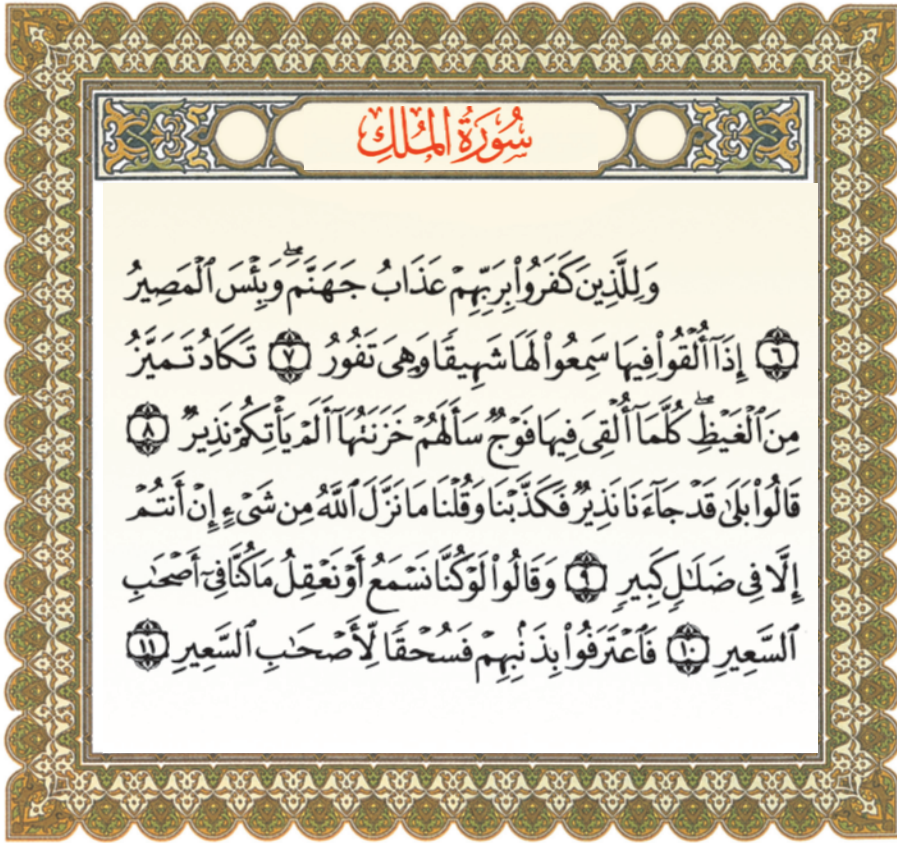 سُورَةُ الْمُلْكِ
وَلِلَّذِينَ كَفَرُوا۟ بِرَبِّهِمْ عَذَابُ جَهَنَّمَ ۖ وَبِئْسَ ٱلْمَصِيرُ
٦ إِذَآ أُلْقُوا۟ فِيهَا سَمِعُوا۟ لَهَا شَهِيقًا وَهِىَ تَفُورُ ٧ تَكَادُ تَمَيَّزُ
مِنَ ٱلْغَيْظِ ۖ كُلَّمَآ أُلْقِىَ فِيهَا فَوْجٌ سَأَلَهُمْ خَزَنَتُهَآ أَلَمْ يَأْتِكُمْ نَذِيرٌ ٨
قَالُوا۟ بَلَىٰ قَدْ جَآءَنَا نَذِيرٌ فَكَذَّبْنَا وَقُلْنَا مَا نَزَّلَ ٱللَّهُ مِن شَىْءٍ إِنْ أَنتُمْ
إِلَّا فِى ضَلَـٰلٍ كَبِيرٍ ٩ وَقَالُوا۟ لَوْ كُنَّا نَسْمَعُ أَوْ نَعْقِلُ مَا كُنَّا فِىٓ أَصْحَـٰبِ
ٱلسَّعِيرِ ١٠ فَٱعْتَرَفُوا۟ بِذَنۢبِهِمْ فَسُحْقًا لِّأَصْحَـٰبِ ٱلسَّعِيرِ ١١